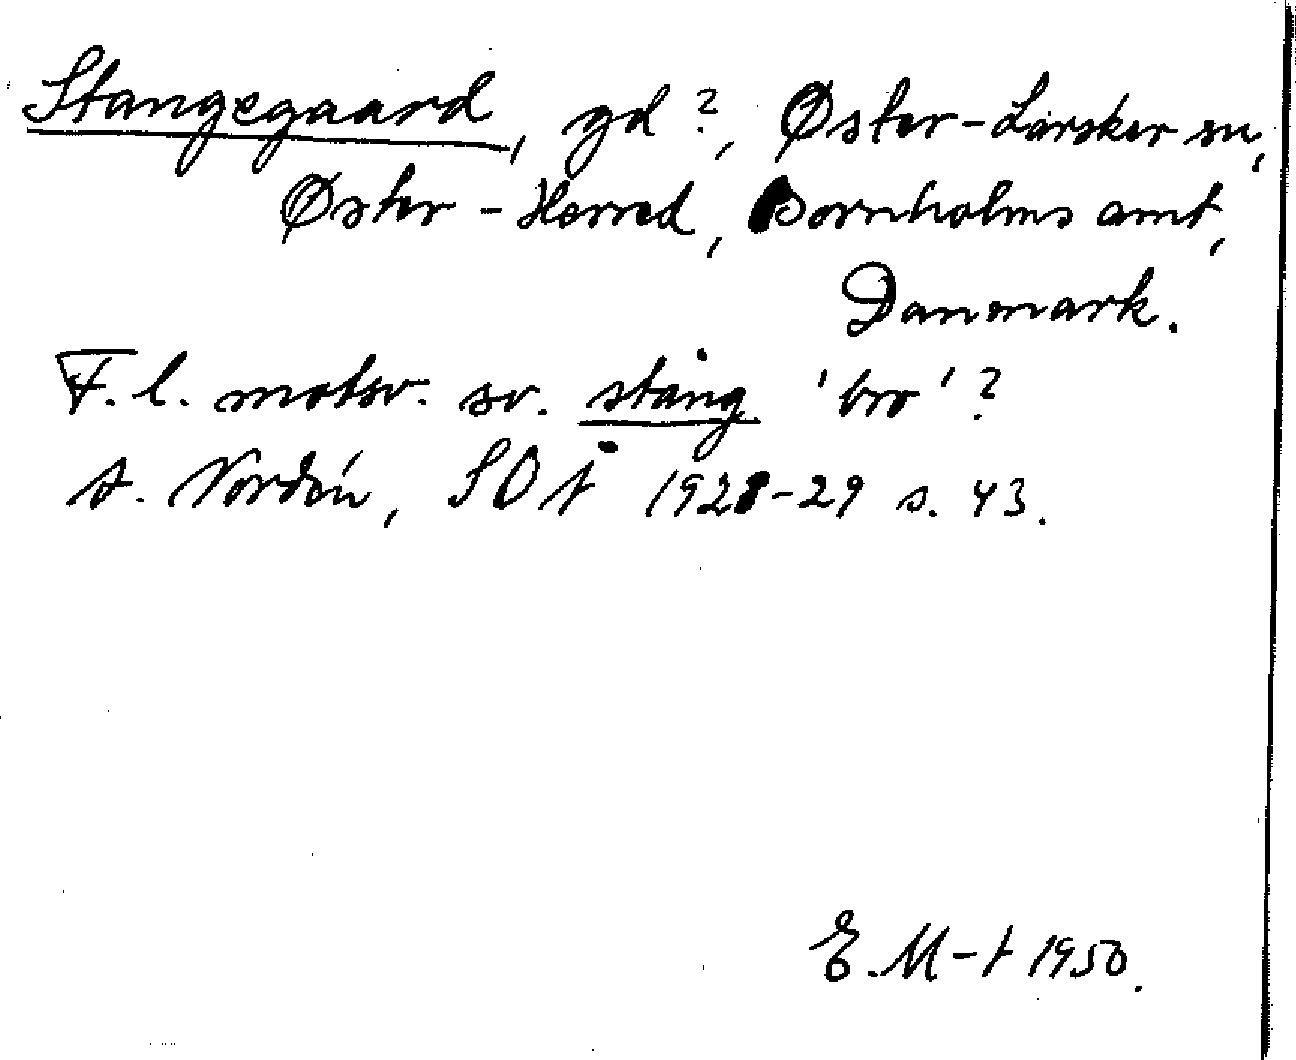 Stangegaard, gd ?, Øster-Larsker sn,
Øster-Herred, Bornholms amt,
Danmark.
F.l. motsv. sv. stång 'bro' ?
A. Nordén, SOÅ 1928-29 s. 43.
E. M-t 1950.